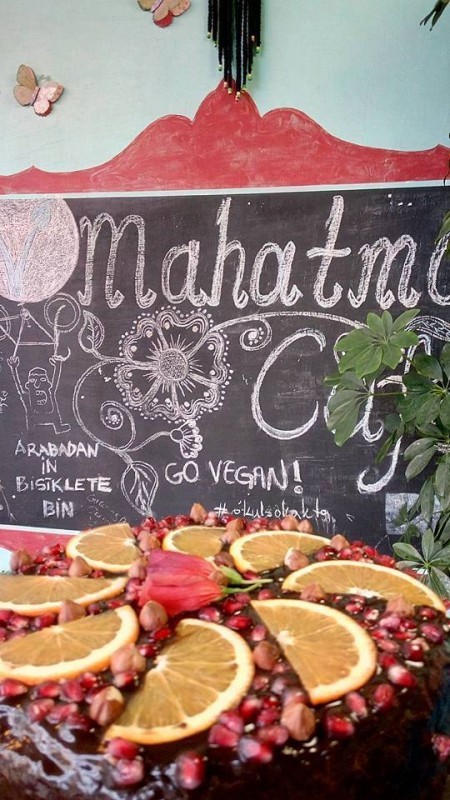 Mahatma
Caf
ARABADAN
IN
BISIKLETE
BIN
GO VEGAN!
#okulsokakta